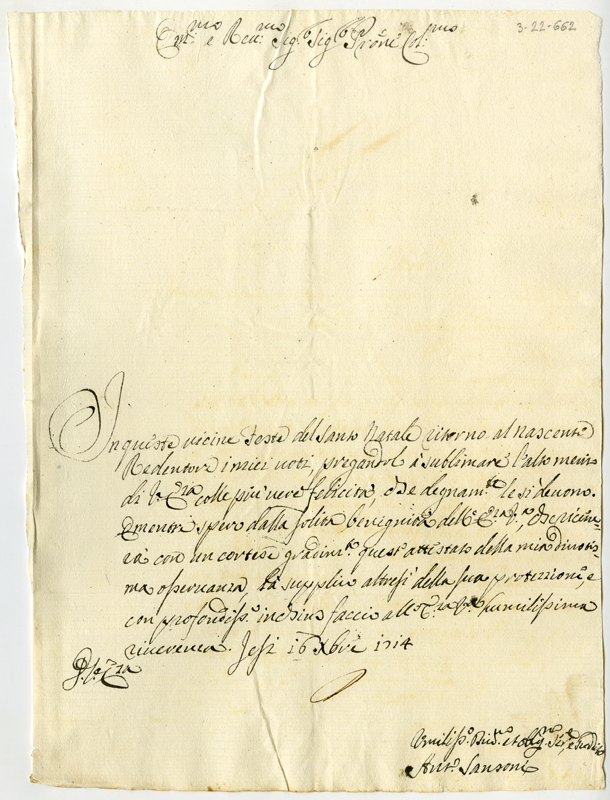 3-22-662
Em.mo e Rev.mo Sig.r Sig.r P̃rõne Col.mo
In queste vicine Feste del Santo Natale ritorno al nascente
Redentore i miei voti, pregandol à sublimare l'alto merito
di V. Em.za colle più vere felicità, che degnam.te le si devono.
E mentre spero dalla solita benignità dell' E.za V.ra che ricev-
erà con un cortese gradim.to quest' attestato della mia divotis-
ma osservanza, la supplico altresì della sua protezzione, e
con profondiss.o inchino faccio all' E.za V.ra humilissima
riverenza. Jesi 16 Xbre 1714
Umiliss.o Div.mo et Obblig.mo Ser.re
Ant.o Sansoni